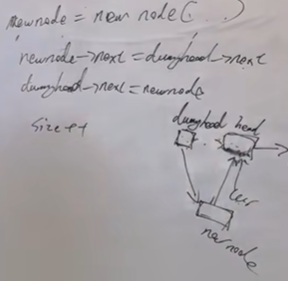 newnode = new node(. . .)
newnode->next = dumyhead->next
dumyhead->next = newnode
size++
dumyhead head
cur
newnode